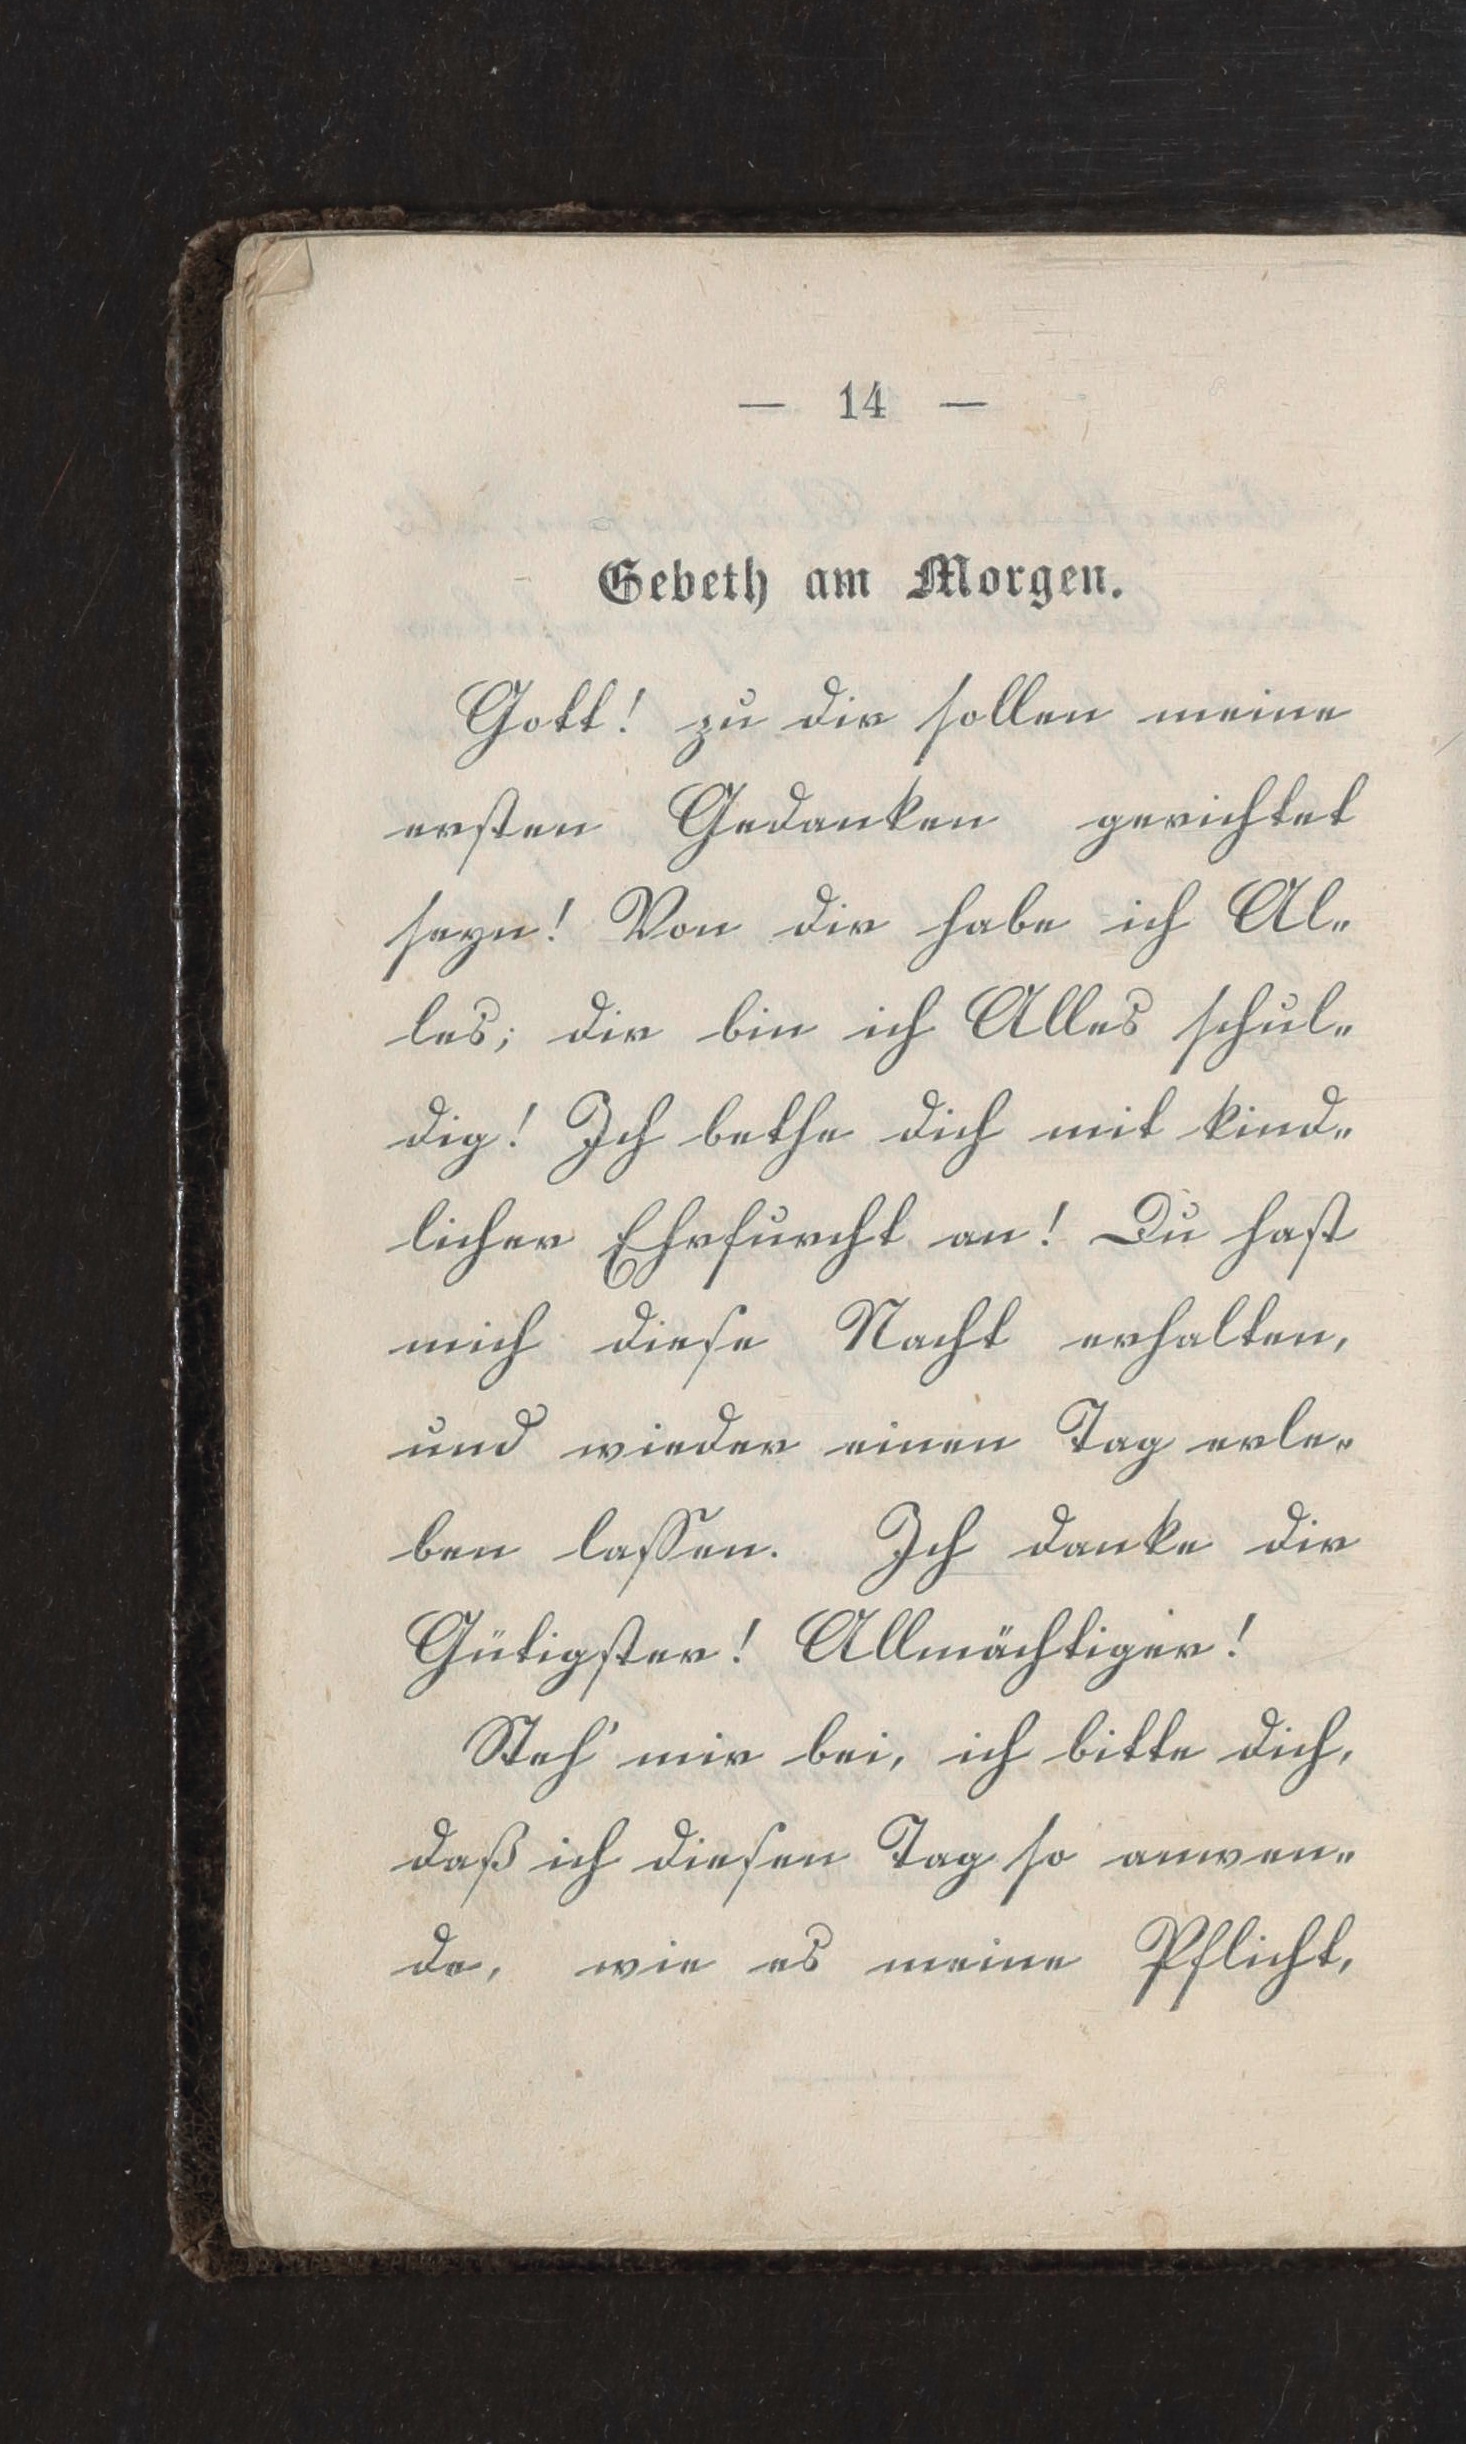 — 14 —
Gebeth am Morgen.
Gott! zu dir sollen meine
ersten Gedanken gerichtet
seyn! Von dir habe ich Al-
les; dir bin ich Alles schul-
dig! Ich bethe dich mit kind-
licher Ehrfurcht an! Du hast
mich diese Nacht erhalten,
und wieder einen Tag erle-
ben lassen. Ich danke dir
Gütigster! Allmächtiger!
Steh' mir bei, ich bitte dich,
daß ich diesen Tag so anwen-
de, wie es meine Pflicht,